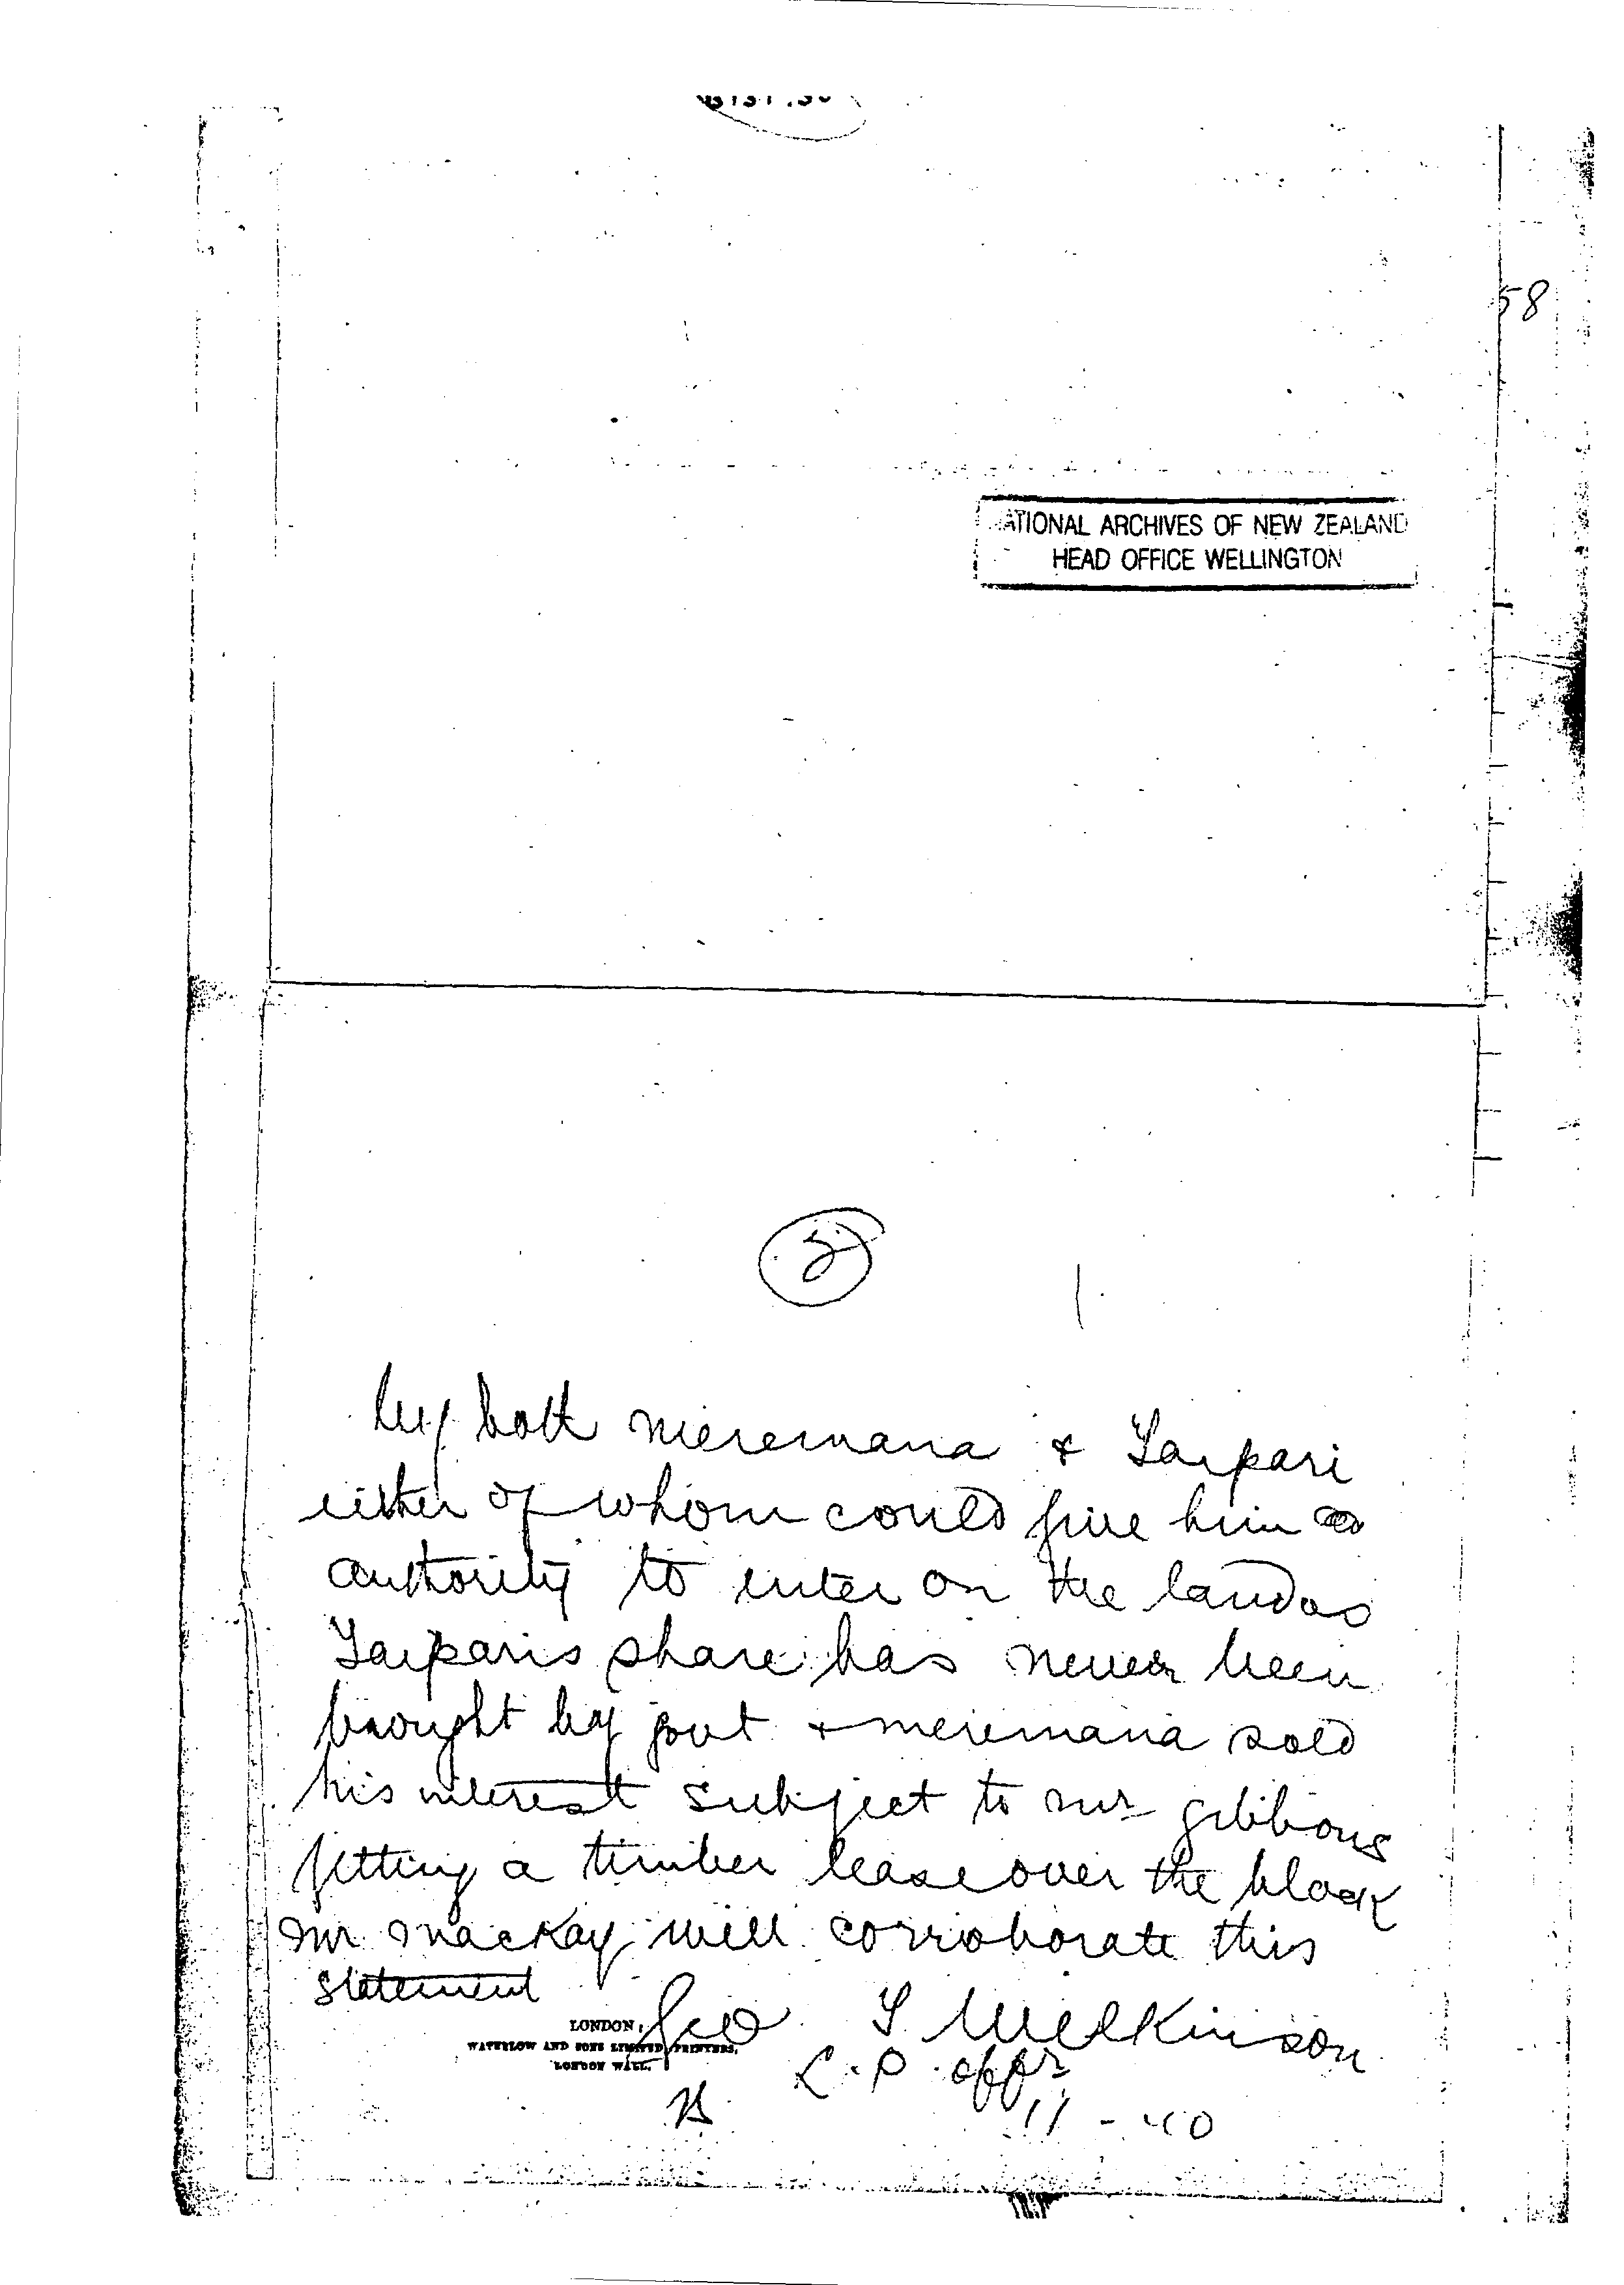 58
ATIONAL ARCHIVES OF NEW ZEALAND
HEAD OFFICE WELLINGTON
3
by both meremana & Taipari
either of whom could give him
authority to enter on the land as
Taiparis share has never been
brought by govt & meremana sold
his interest subject to mr gibbons
getting a timber lease over the block
mr mackay will corroborate this
statement
Geo T. Wilkinson
LONDON,
WATERLOW AND SONS LIMITED, PRINTERS,
LONDON WALL.
L. P. offr
11-40